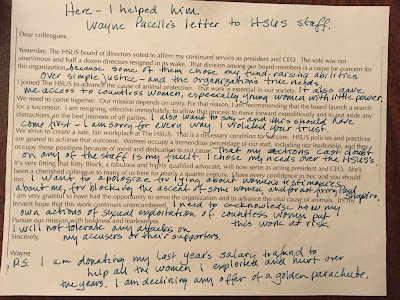 Here - I helped him
Wayne Pacelle's letter to HSUS staff.
Dear colleagues,
Yesterday, The HSUS board of directors voted to affirm my continued service as president and CEO. The vote was not
unanimous and half a dozen directors resigned in its wake. That division among our board members is a cause for concern for
the organization. because some of them chose my fund-raising abilities
over simple justice - and the organization's true needs.
I joined The HSUS to advance the cause of animal protection. That work is essential in our society. It also gave
me access to countless women, especially young women with little power.
We need to come together. Our mission depends on unity. For that reason, I am recommending that the board launch a search
for a successor. I am resigning, effective immediately, to allow that process to move forward expeditiously and to put aside any
distractions, in the best interests of all parties. I also want to say - and this should have
come first - I am sorry for every way I violated your trust.
We strive to create a safe, fair workplace at The HSUS. That is a necessary pathway to success. HSUS policies and practices
are geared to achieve that outcome. Women occupy a tremendous percentage of our staff, including senior leadership, and they
occupy those positions because of merit and dedication to our cause. That my actions cast doubt
on any of the staff is my fault. I chose my needs over the HSUS's.
It's very fitting that Kitty Block, a fabulous and highly qualified advocate, will now serve as acting president and CEO. She's
been a cherished colleague to many of us here for nearly a quarter century. I have every confidence in her, and you should
I want to apologize for lying about women's testimonies
about me, for blocking the ascent of some women, and for not firing Paul Shapiro.
I am very grateful to have had the opportunity to serve the organization and to advance the vital cause of animals. It's my
fervent hope that this work continues unencumbered. I need to acknowledge how my
own actions of sexual exploitation of countless women put
Pursue our mission with boldness and fearlessness. this work at risk
I will not tolerate any attacks on
Sincerely, my accusers or their supporters.
Wayne
P.S. I am donating my last year's salary to a fund to
help all the women I exploited and hurt over
the years. I am declining any offer of a golden parachute.